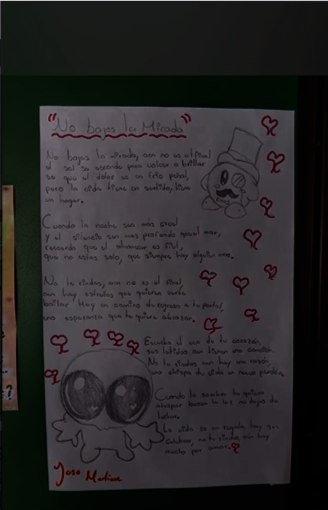 "No bajes la Mirada"
No bajes la mirada, aun no es el final
el sol se esconde para volver a brillar
se que el dolor es un frio puñal,
pero la vida tiene un sentido, tiene
un lugar.
Cuando la noche sea más cruel
y el silencio sea más que
recuerda que el amanecer es fiel,
que no estas solo, que siempre hay alguien
No te rindas, aun no es el final
aun hay estrellas que quieren verte
bailar hay un camino de regreso a tu portal,
una esperanza que te quiere abrazar.
Escucha el eco de tu corazón,
sus latidos aun tienen una canción
No te rindas aun hay una razón,
una chispa de vida en
Cuando la sombra te quiera
atrapar busca la luz no dejes de
luchar.
La vida es un regalo, hay que
cuidar, no te rindas, aun hay
mucho por amar.
Jose Martinez
?